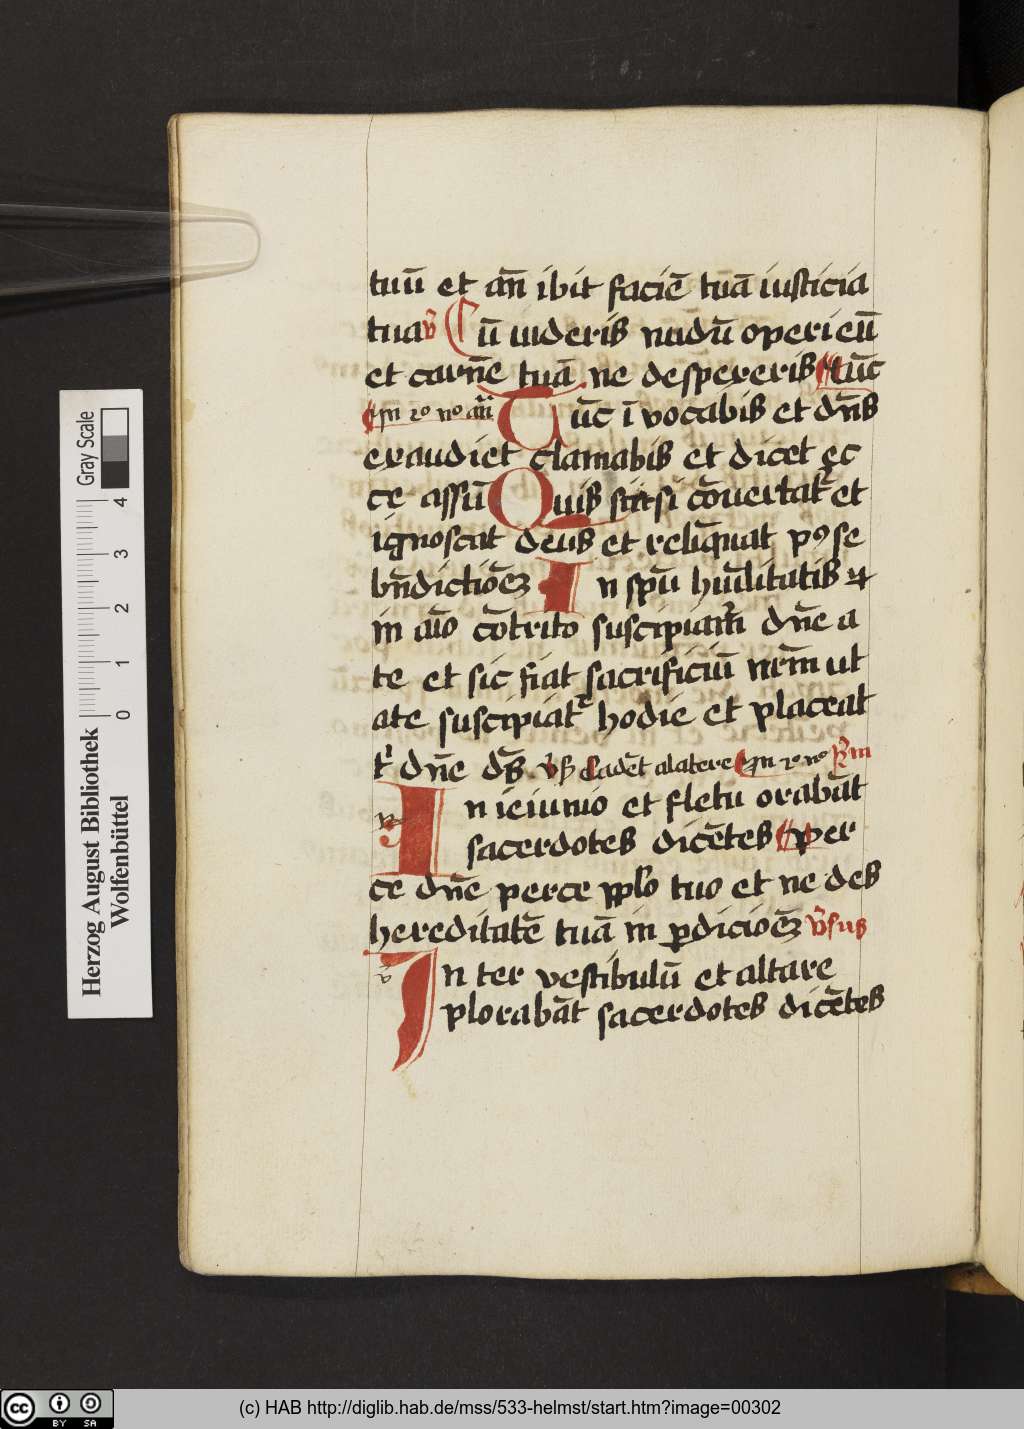 tuū et an̄ ibit faciē tuā iusticia
tua v̄ Cū uideris nudū operi eū
et carnē tuā ne despexeris Tūc
an̄
Tūc īvocabis et dn̄s
exaudiet clamabis et dicet ec
ce assū Quis scit si cōuertat᷑ et
ignoscat deus et relīquat pꝰ se
bn̄dictiōeꝫ In spū hūilitatis ⁊
in aīo cōtrito suscipiam᷑ dn̄e a
te et sic fiat sacrificiū nr̄m ut
a te suscipiat᷑ hodie et placeat
t̄ dn̄e ds̄ vß Cadēt a latere
In ieiunio et fletu orabāt
sacerdotes dicētes Par
ce dn̄e parce pplo tuo et ne des
hereditatē tuā in ꝑdiciōeꝫ v̄sus
Inter vestibulū et altare
plorabāt sacerdotes dicētes
Gray Scale
4
3
2
1
0
Herzog August Bibliothek
Wolfenbüttel
cc BY SA
(c) HAB http://diglib.hab.de/mss/533-helmst/start.htm?image=00302